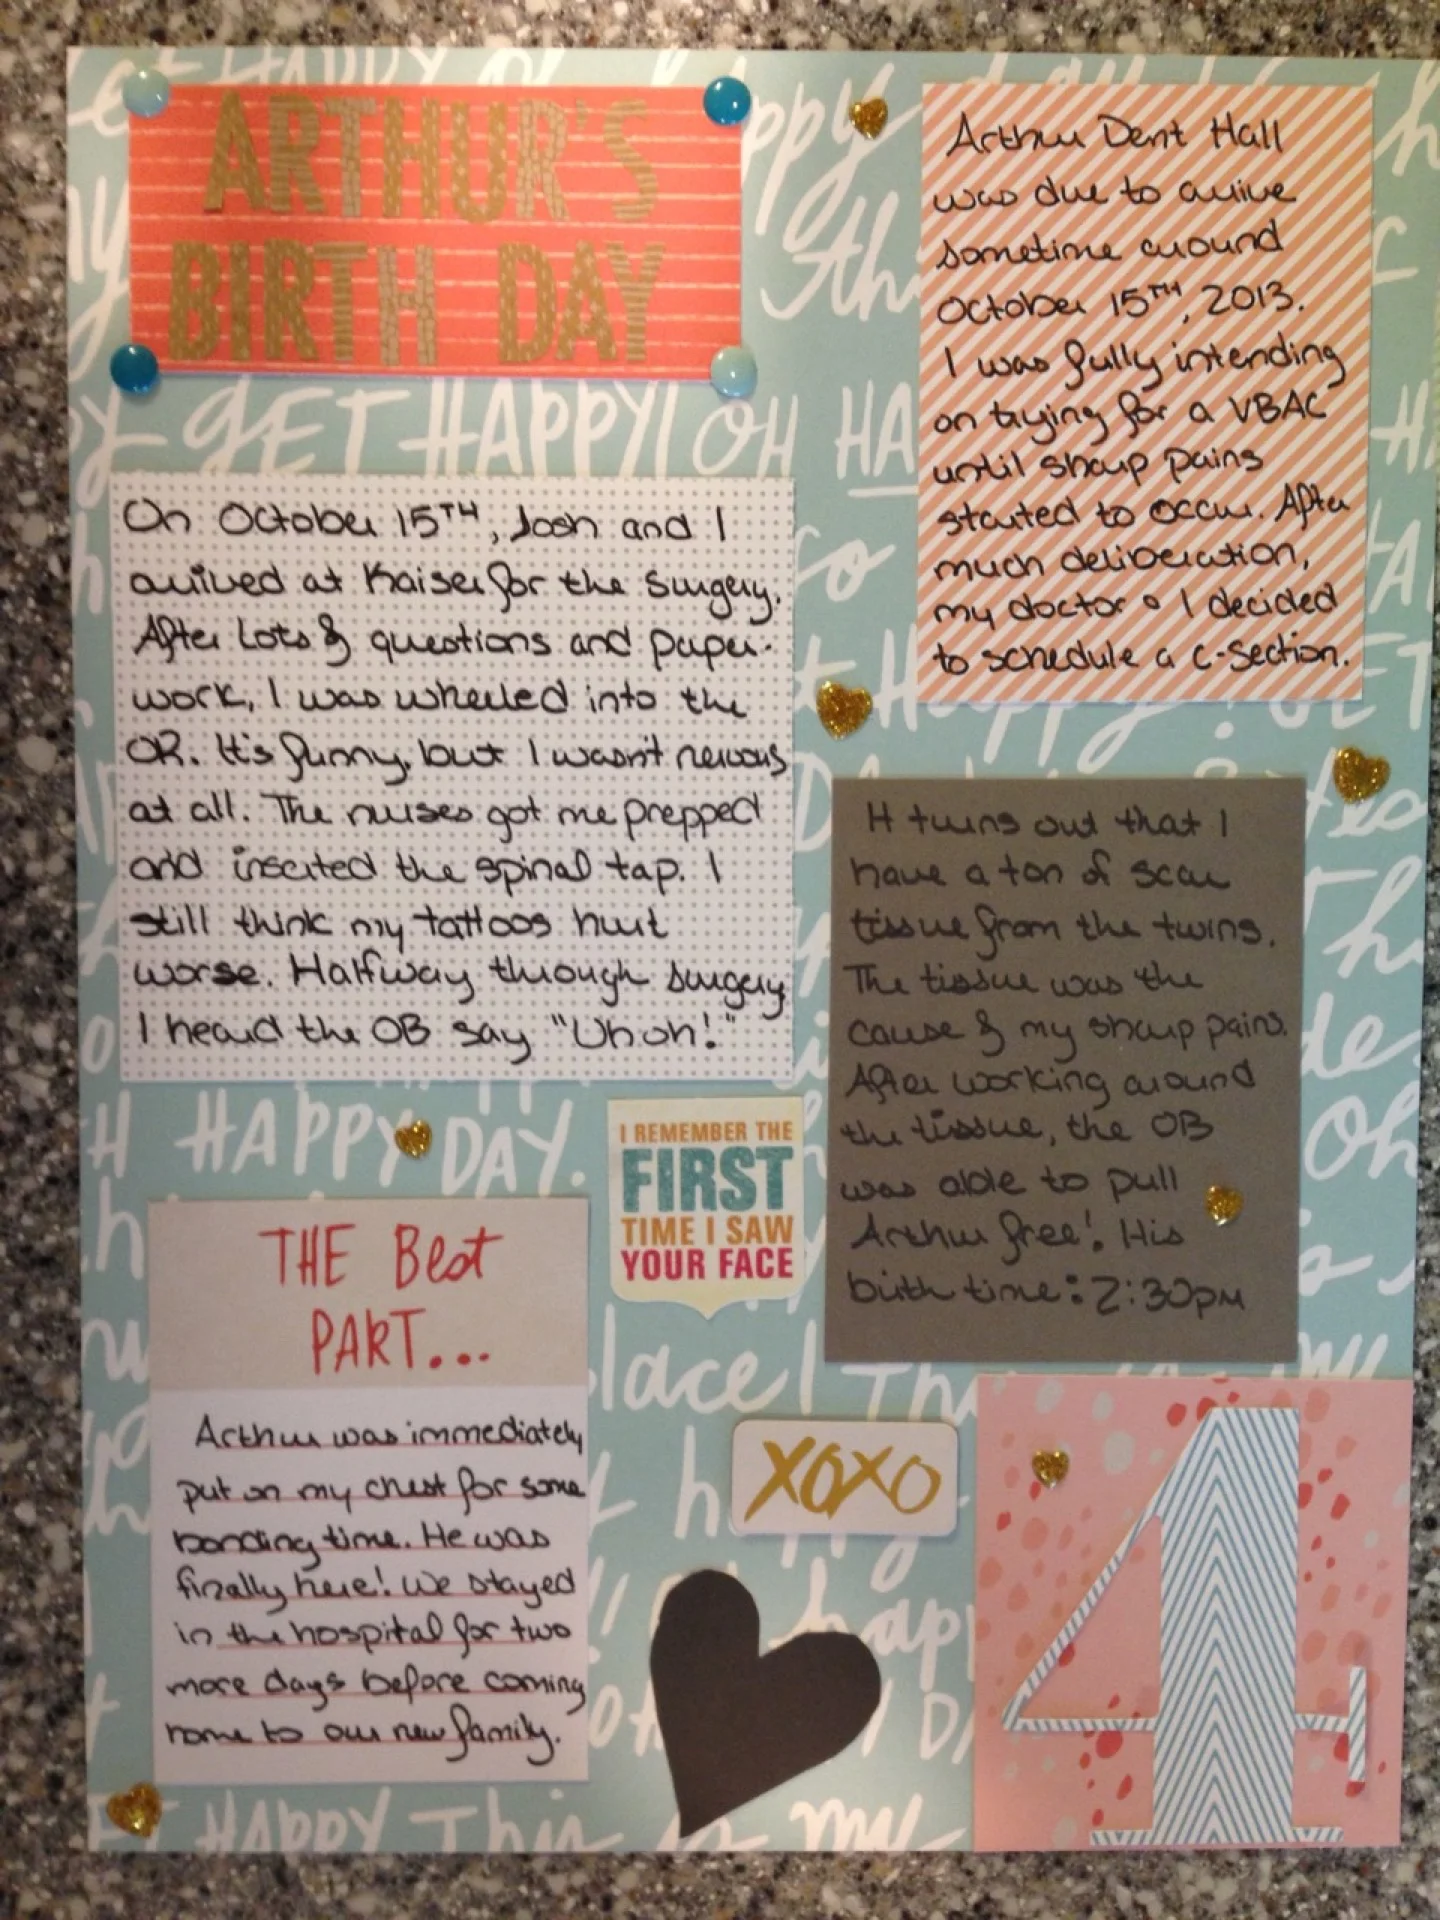 ARTHUR'S
BIRTH DAY
Arthur Dent Hall
was due to arrive
sometime around
October 15TH, 2013.
I was fully intending
on trying for a VBAC
until sharp pains
started to occur. After
much deliberation,
my doctor & I decided
to schedule a c-section.
On October 15TH, Josh and I
arrived at Kaiser for the surgery.
After lots of questions and paper-
work, I was wheeled into the
OR. It's funny, but I wasn't nervous
at all. The nurses got me prepped
and inserted the spinal tap. I
still think my tattoos hurt
worse. Halfway through surgery
I heard the OB say "Uh oh!"
It turns out that I
have a ton of scar
tissue from the twins.
The tissue was the
cause of my sharp pains.
After working around
the tissue, the OB
was able to pull
Arthur free! His
birth time: 2:30pm
I REMEMBER THE
FIRST
TIME I SAW
YOUR FACE
THE Best
PART...
Arthur was immediately
put on my chest for some
bonding time. He was
finally here! We stayed
in the hospital for two
more days before coming
home to our new family.
XOXO
4
GET HAPPY! OH HA
HAPPY DAY.
place! Th
HAPPY This is my